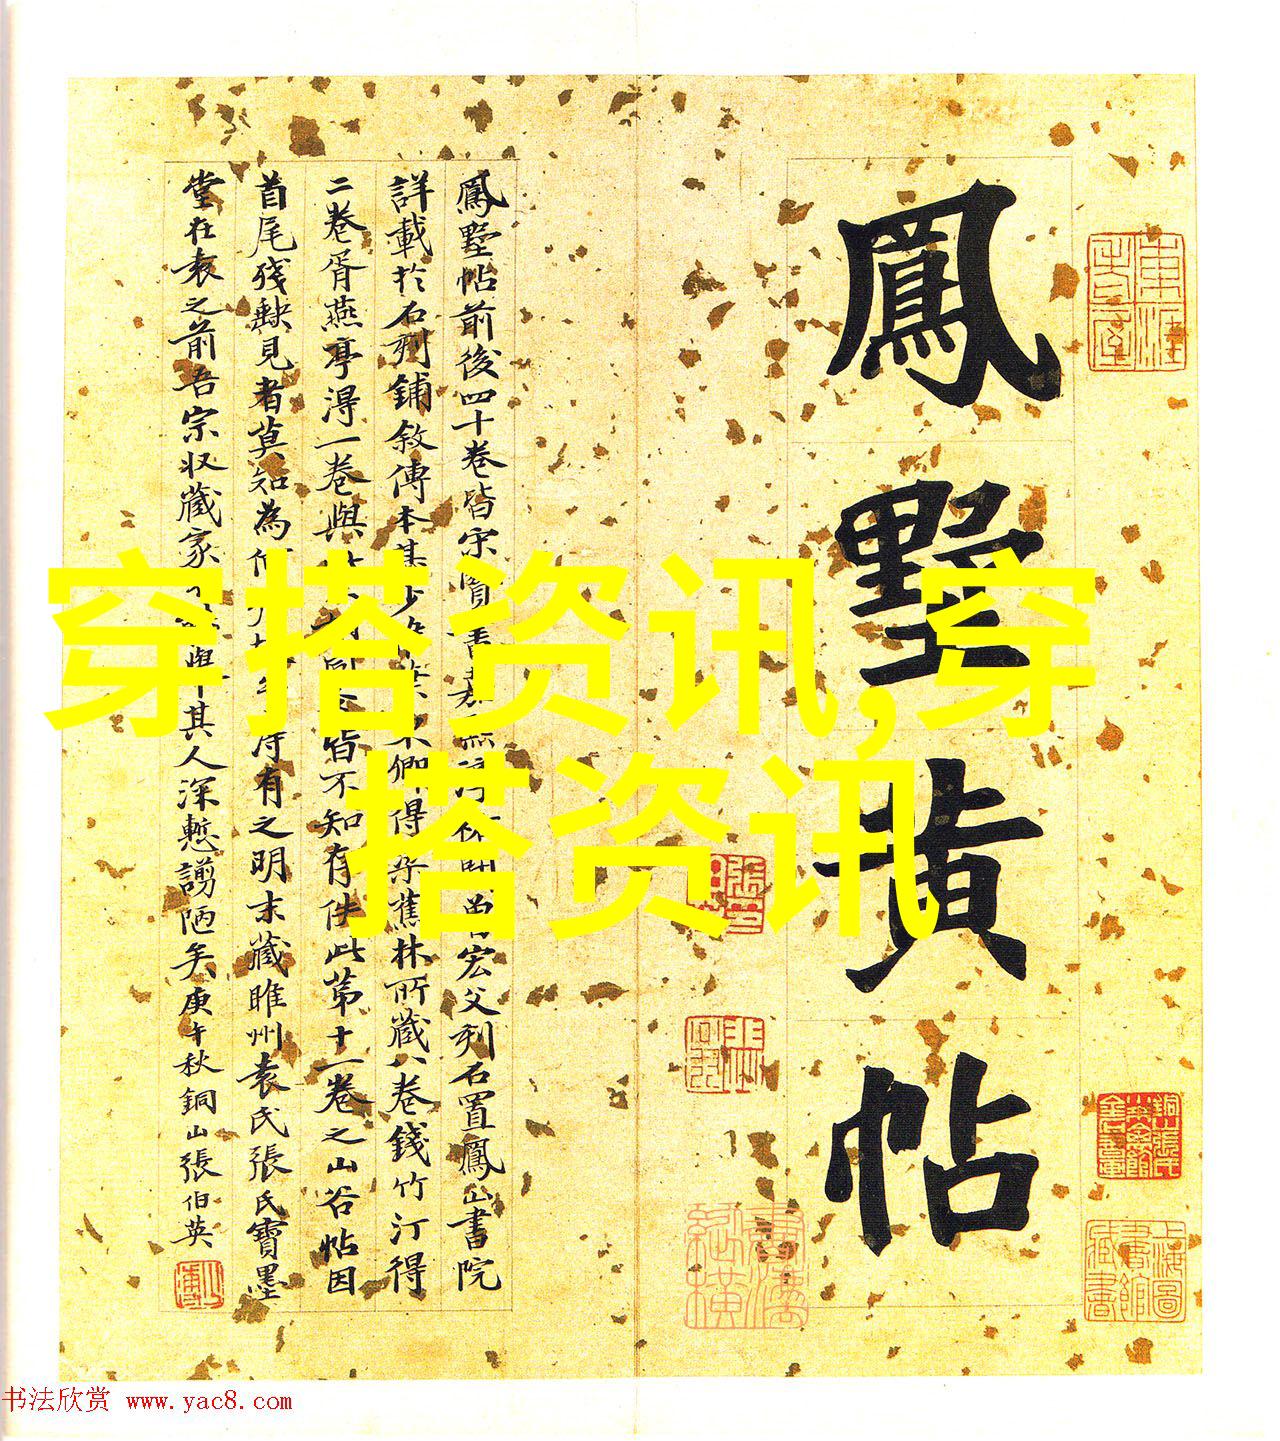 鳳墅黃帖
鳳墅帖前後四十卷皆宋賢書
宏父刻石置鳳山書院
詳載於石刻鋪敘傳本甚少
卿得梁蕉林所藏八卷錢竹汀得
二卷胥燕亭得一卷與
皆不知有佚此第十一卷之山谷帖因
首尾殘缺見者莫知為何
有之明末藏睢州袁氏張氏寶墨
堂在袁之前吾宗收藏家
其人深慙謭陋矣庚午秋銅山張伯英
穿搭资讯,穿
搭资讯
上海圖書館藏書
书法欣赏 www.yac8.com